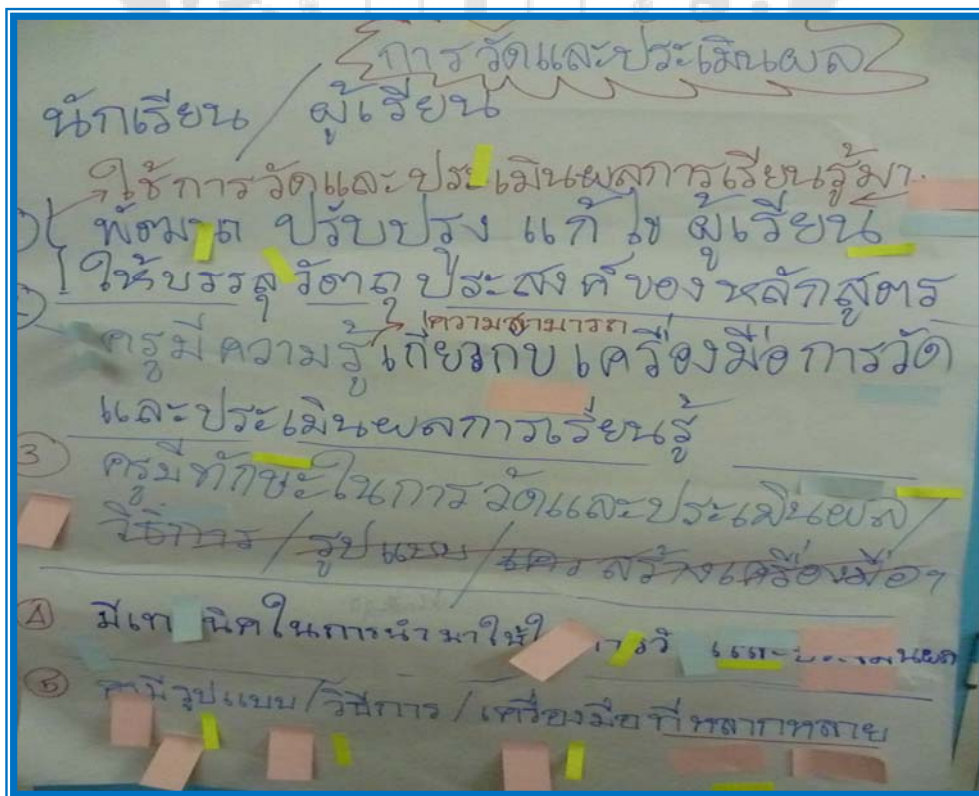 การวัดและประเมินผล
นักเรียน / ผู้เรียน
ใช้การวัดและประเมินผลการเรียนรู้มา
พัฒนา ปรับปรุง แก้ไข ผู้เรียน
ให้บรรลุวัตถุประสงค์ของหลักสูตร
ความสามารถ
ครูมีความรู้ เกี่ยวกับ เครื่องมือการวัด
และประเมินผลการเรียนรู้
3 ครูมีทักษะในการวัดและประเมินผล/
วิธีการ / รูปแบบ / สร้างเครื่องมือฯ
4 มีเทคนิคในการนำมาใช้
5 รูปแบบ / วิธีการ / เครื่องมือที่หลากหลาย